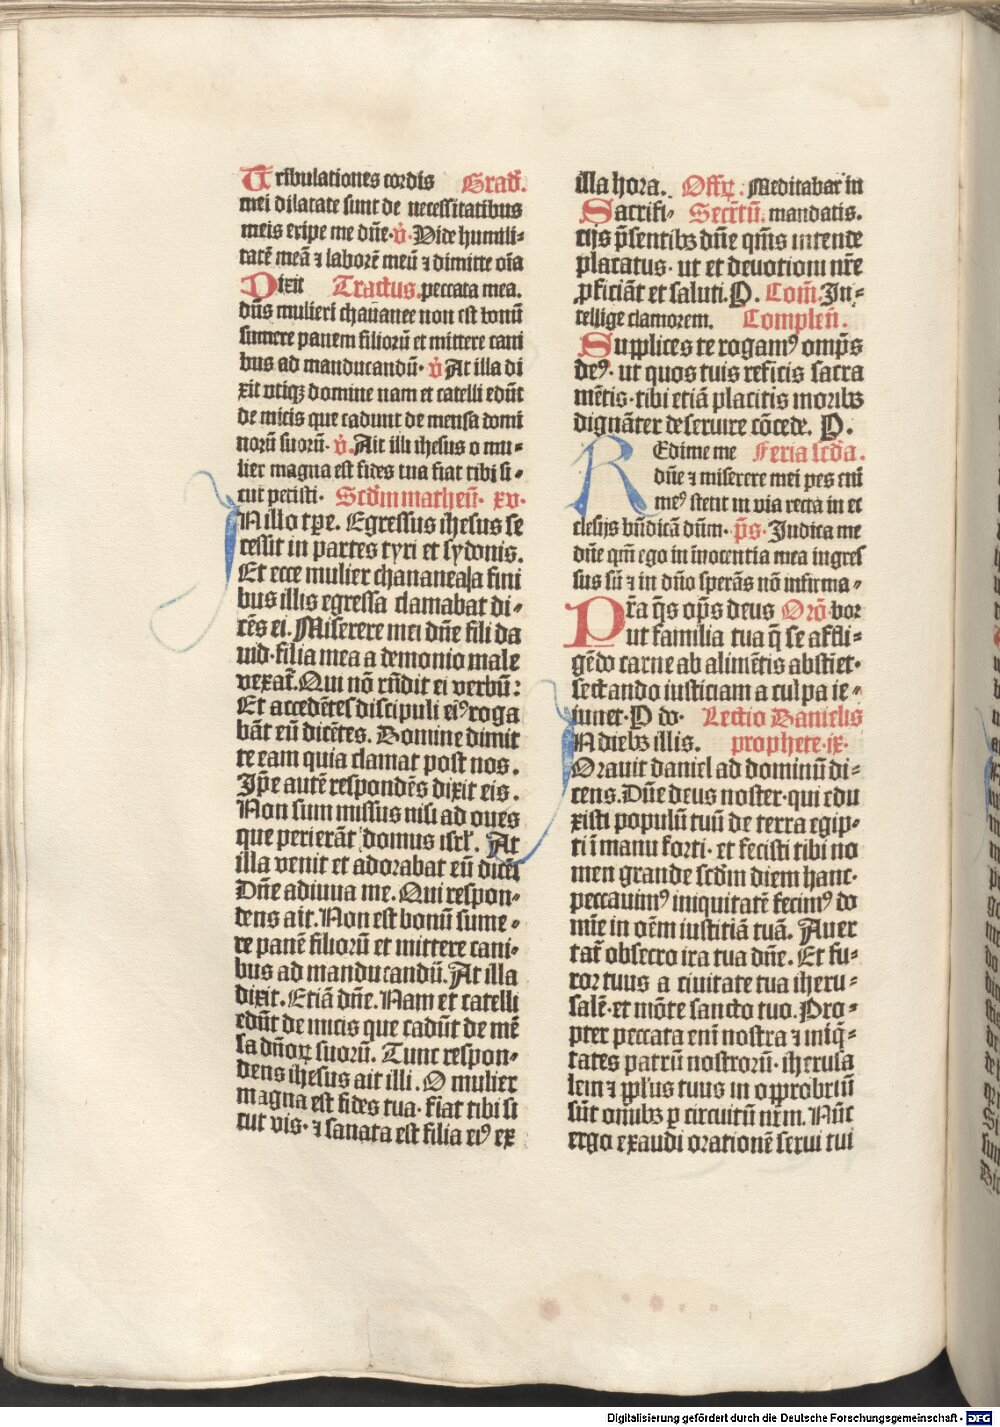 Tribulationes cordis Grad̃.
mei dilatate sunt de necessitatibus
meis eripe me dñe· v̾· Vide humili⸗
tatẽ meã ⁊ laborẽ meũ ⁊ dimitte oĩa
Dixit Tractus. peccata mea.
dñs mulieri chananee non est bonũ
sumere panem filiorũ et mittere cani
bus ad manducandũ· v̾· At illa di
xit vtiqꝫ domine nam et catelli edũt
de micis que cadunt de mensa domi
norũ suorũ· v̾· Ait illi ihesus o mu⸗
lier magna est fides tua fiat tibi si⸗
cut petisti· Scd̃m matheũ· xv·
IN illo tꝑe. Egressus ihesus se
cessit in partes tyri et sydonis.
Et ecce mulier chananea a fini
bus illis egressa clamabat di⸗
cẽs ei. Miserere mei dñe fili da
uid· filia mea a demonio male
vexat̃. Qui nõ rñdit ei verbũ:
Et accedẽtes discipuli eiꝰ roga
bãt eũ dicẽtes. Domine dimit
te eam quia clamat post nos.
Ip̃e autẽ respondẽs dixit eis.
Non sum missus nisi ad oues
que perierãt domus isrl̾. At
illa venit et adorabat eũ dicẽs
Dñe adiuua me. Qui respon⸗
dens ait. Non est bonũ sume⸗
re panẽ filiorũ et mittere cani⸗
bus ad manducandũ. At illa
dixit. Etiã dñe. Nam et catelli
edũt de micis que cadũt de mẽ
sa dñoꝝ suorũ. Tunc respon⸗
dens ihesus ait illi. O mulier
magna est fides tua· fiat tibi si
cut vis· ⁊ sanata est filia eiꝰ ex
illa hora. Offꝝ· Meditabar in
Sacrifi⸗ Secrẽtũ. mandatis.
cijs p̃sentibꝫ dñe qm̃s intende
placatus· ut et deuotioni nr̃e
ꝓficiãt et saluti. P. Com̃. In⸗
tellige clamorem. Complen̄.
Supplices te rogamꝰ omp̃s
deꝰ· ut quos tuis reficis sacra
mẽtis· tibi etiã placitis moribꝫ
dignãter deseruire cõcede. P.
REdime me Feria scd̃a.
dñe ⁊ miserere mei pes eni
meꝰ stetit in via recta in ec
clesijs bñdicã dñm· p̃s· Iudica me
dñe qm̃ ego in ĩnocentia mea ingres
sus sũ ⁊ in dño sperãs nõ infirma⸗
Pr̃a q̃s op̃s deus Orõ· bor
ut familia tua q̃ se affli⸗
gẽdo carne ab alimẽtis abstĩet·
sectando iusticiam a culpa ie⸗
iunet· P do· Lectio Danielis
IN diebꝫ illis. prophete· ix·
Orauit daniel ad dominũ di⸗
cens. Dñe deus noster· qui edu
xisti populũ tuũ de terra egip⸗
ti ĩ manu forti· et fecisti tibi no
men grande scd̃m diem hanc·
peccauimꝰ iniquitatẽ fecimꝰ do
mĩe in oẽm iustitiã tuã. Auer
tat̃ obsecro ira tua dñe. Et fu⸗
ror tuus a ciuitate tua iheru⸗
salẽ· et mõte sancto tuo. Pro⸗
pter peccata enĩ nostra ⁊ iniq̃⸗
tates patrũ nostrorũ· iherusa
lem ⁊ ppl̾us tuus in opprobriũ
sũt oĩbꝫ ꝑ circuitũ nr̃m. Nũc
ergo exaudi orationẽ serui tui
Digitalisierung gefördert durch die Deutsche Forschungsgemeinschaft - DFG